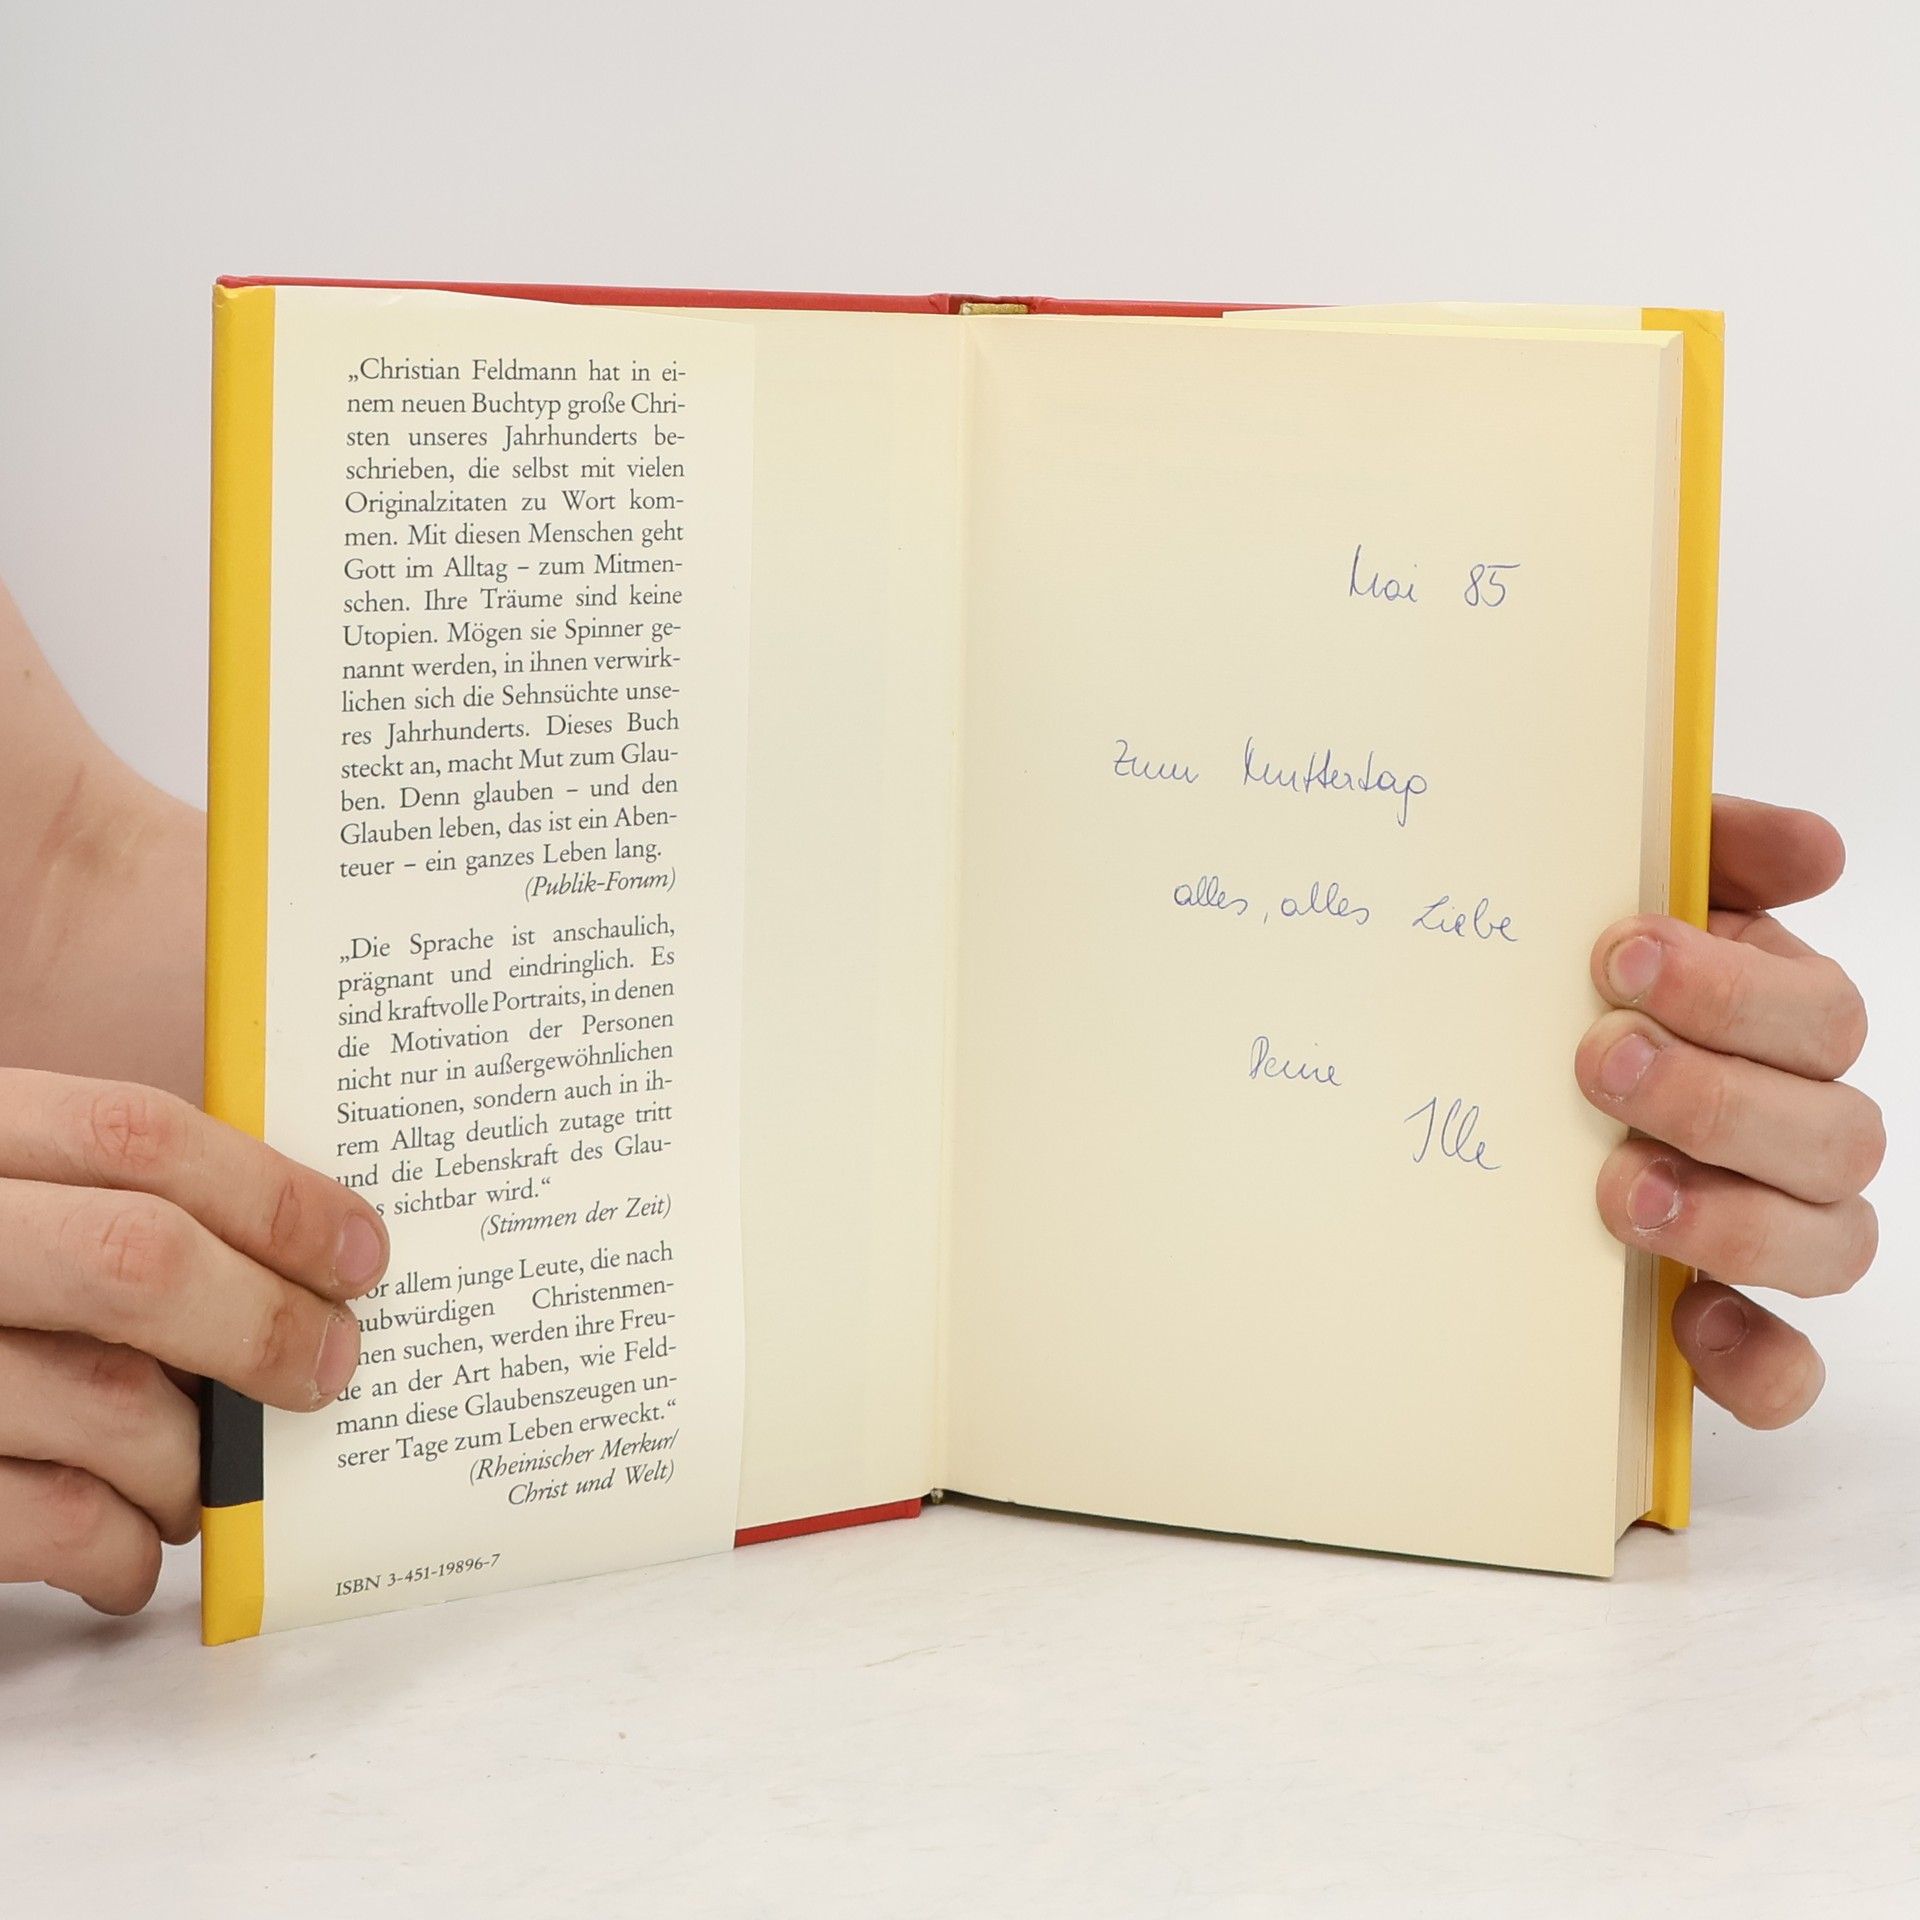 „Christian Feldmann hat in ei-
nem neuen Buchtyp große Chri-
sten unseres Jahrhunderts be-
schrieben, die selbst mit vielen
Originalzitaten zu Wort kom-
men. Mit diesen Menschen geht
Gott im Alltag – zum Mitmen-
schen. Ihre Träume sind keine
Utopien. Mögen sie Spinner ge-
nannt werden, in ihnen verwirk-
lichen sich die Sehnsüchte unse-
res Jahrhunderts. Dieses Buch
steckt an, macht Mut zum Glau-
ben. Denn glauben – und den
Glauben leben, das ist ein Aben-
teuer – ein ganzes Leben lang.
(Publik-Forum)
„Die Sprache ist anschaulich,
prägnant und eindringlich. Es
sind kraftvolle Portraits, in denen
die Motivation der Personen
nicht nur in außergewöhnlichen
Situationen, sondern auch in ih-
rem Alltag deutlich zutage tritt
und die Lebenskraft des Glau-
sichtbar wird.“
(Stimmen der Zeit)
allem junge Leute, die nach
Christenmen-
suchen, werden ihre Freu-
de an der Art haben, wie Feld-
mann diese Glaubenszeugen un-
serer Tage zum Leben erweckt.“
(Rheinischer Merkur/
Christ und Welt)
ISBN 3-451-19896-7
Mai 85
Zum Muttertag
alles, alles Liebe
Deine
Ille